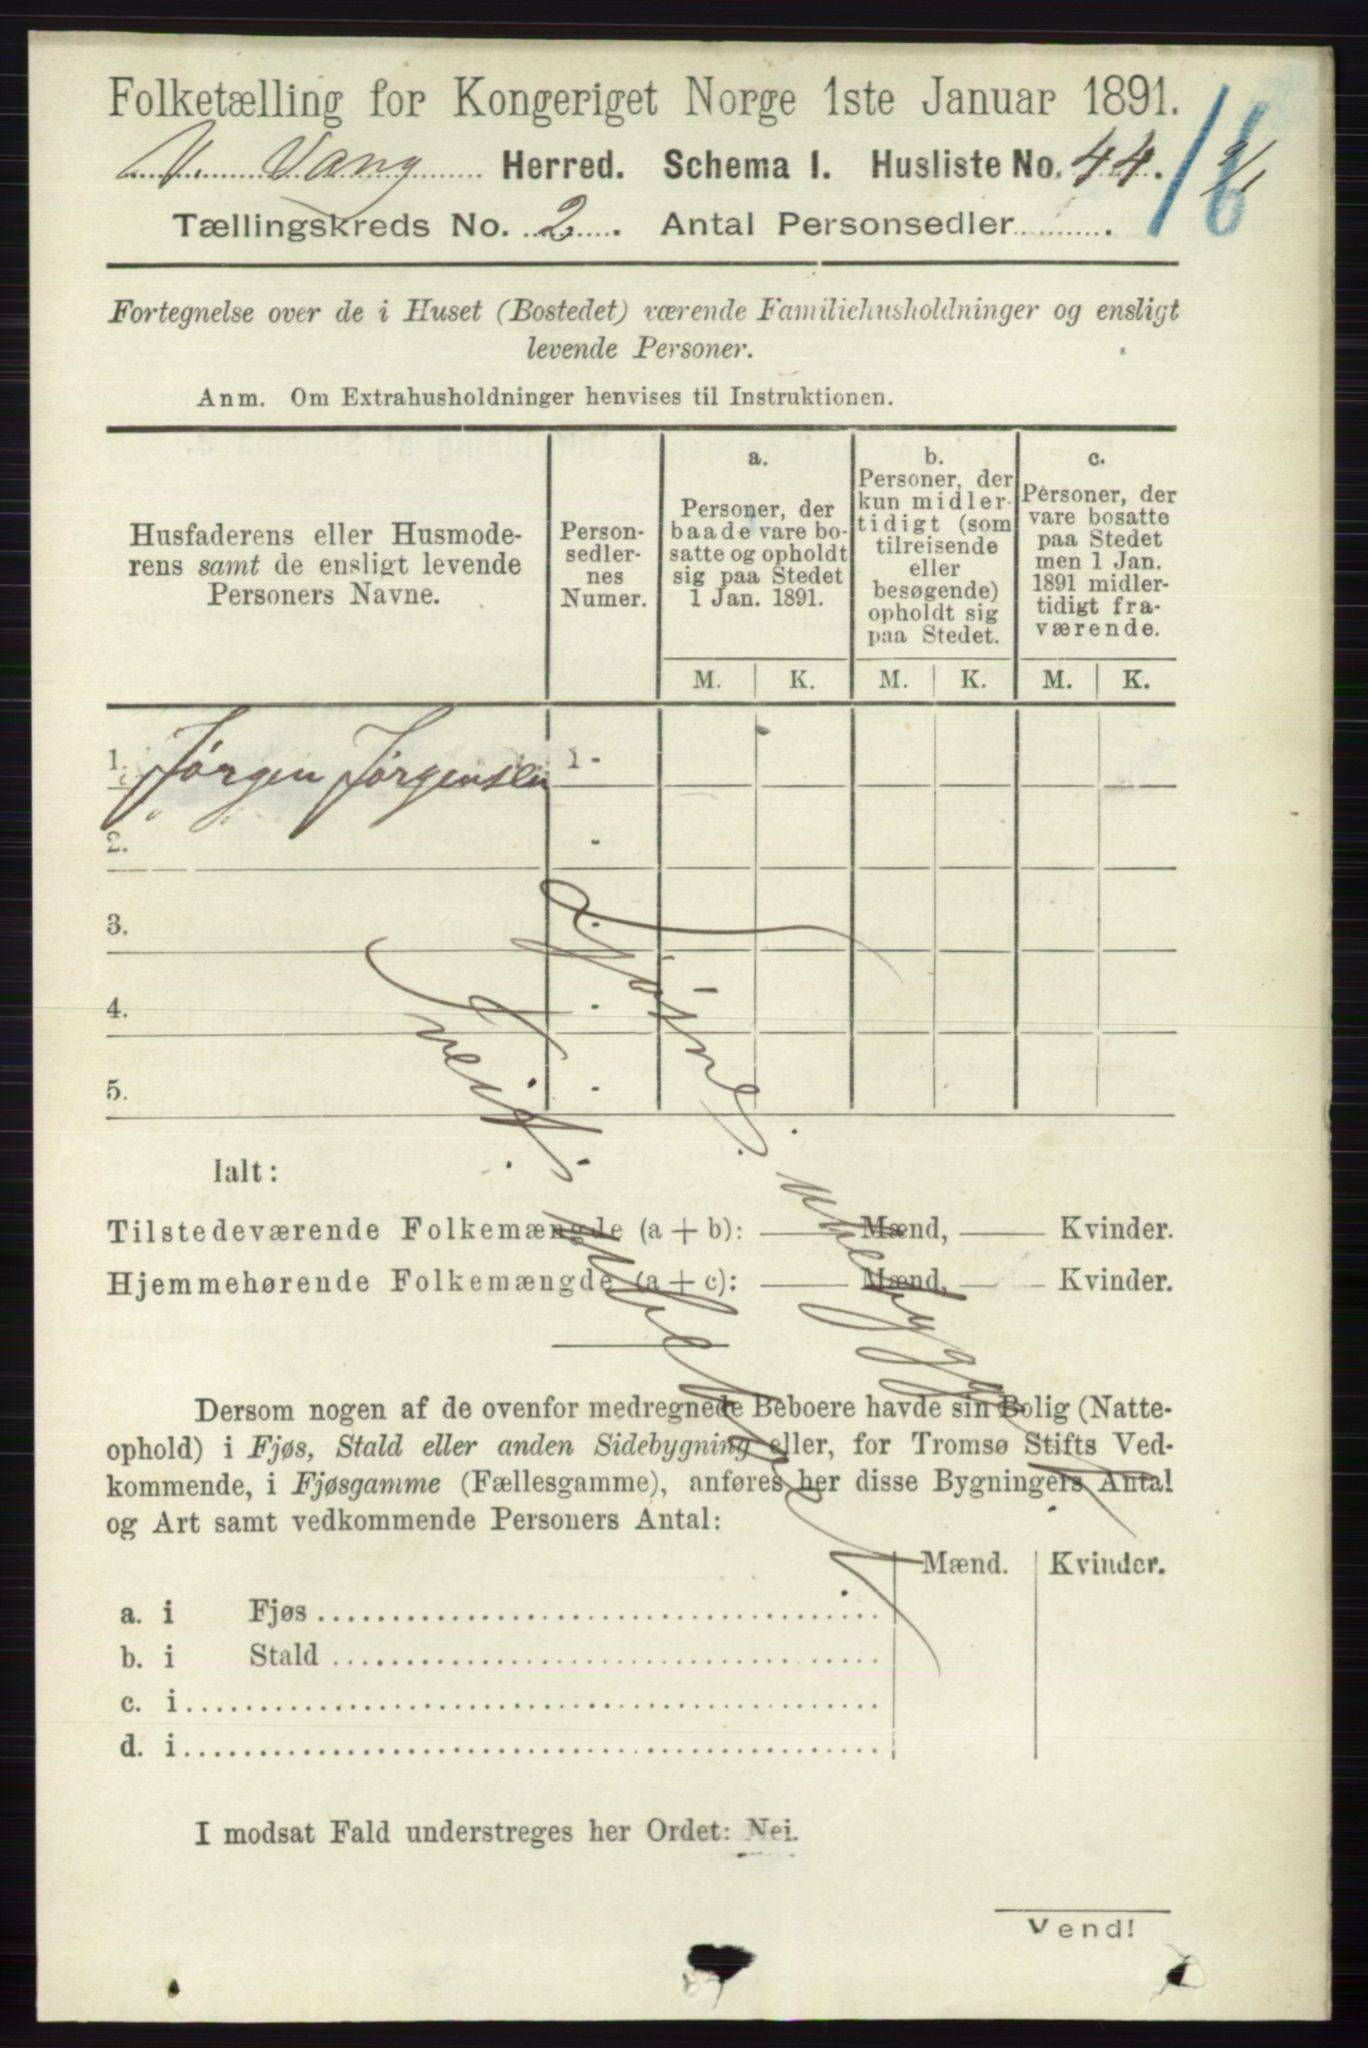 Folketælling for Kongeriget Norge 1ste Januar 1891.
V. Vang Herred. Schema I. Husliste No. 44.
Tællingskreds No. 2. Antal Personsedler .
Fortegnelse over de i Huset (Bostedet) værende Familiehusholdninger og ensligt
levende Personer.
Anm. Om Extrahusholdninger henvises til Instruktionen.
Husfaderens eller Husmode-
rens samt de ensligt levende
Personers Navne.
Person-
sedler-
nes
Numer.
a.
Personer, der
baade vare bo-
satte og opholdt
sig paa Stedet
1 Jan. 1891.
b.
Personer, der
kun midler-
tidigt (som
tilreisende
eller
besøgende)
opholdt sig
paa Stedet.
c.
Personer, der
vare bosatte
paa Stedet
men 1 Jan.
1891 midler-
tidigt fra-
værende.
M. K. M. K. M. K.
1. Jørgen Jørgensen 1 -
2. -
3.
4. -
5. -
Ialt:
Tilstedeværende Folkemængde (a + b): Mænd, Kvinder.
Hjemmehørende Folkemængde (a + c): Mænd, Kvinder.
ubeboet
Dersom nogen af de ovenfor medregnede Beboere havde sin Bolig (Natte-
ophold) i Fjøs, Stald eller anden Sidebygning eller, for Tromsø Stifts Ved-
kommende, i Fjøsgamme (Fællesgamme), anføres her disse Bygningers Antal
og Art samt vedkommende Personers Antal:
Mænd. Kvinder.
a. i Fjøs
b. i Stald
c. i
d. i
I modsat Fald understreges her Ordet: Nei.
Vend!